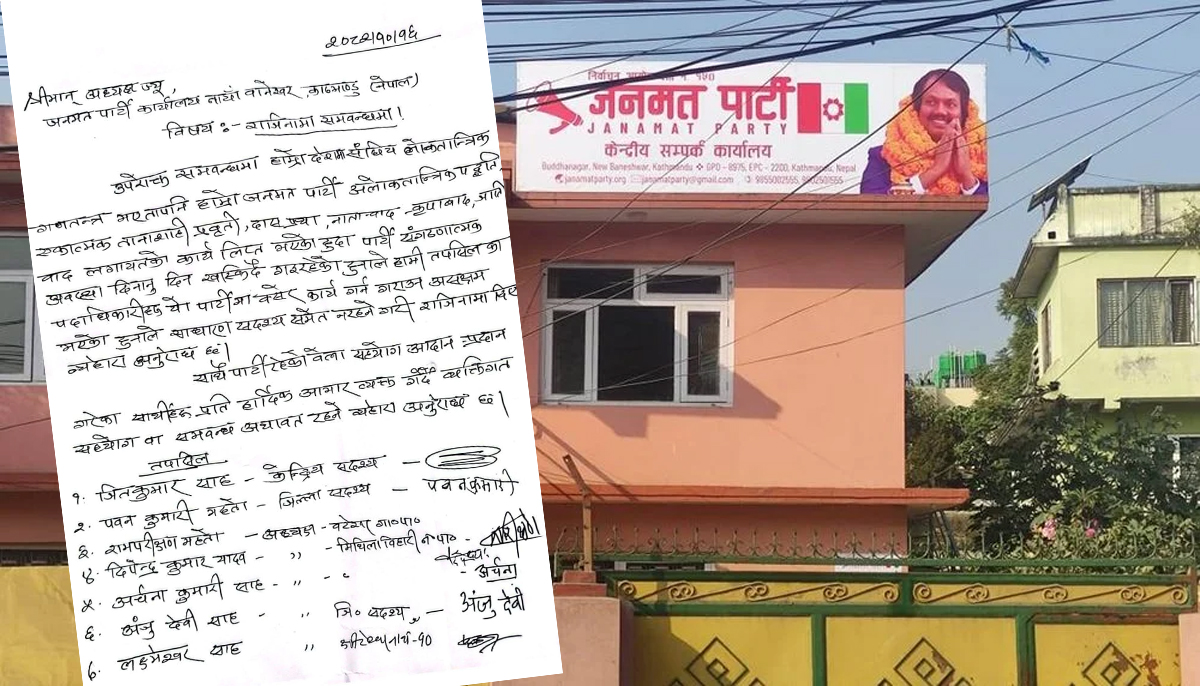 २०८२।१०।१६
श्रीमान् अध्यक्ष ज्यू,
जनमत पार्टी कार्यालय नायाँ वानेश्वर, काठमाण्डु (नेपाल)
विषय :- राजिनामा सम्वन्धमा।
उपरोक्त सम्वन्धमा हाम्रो देशमा संघिय लोकतान्त्रिक
गणतन्त्र भएतापनि हाम्रो जनमत पार्टी अलोकतान्त्रिक
एकात्मक तानाशाही प्रवृती, दास प्रथा, नातावाद, कृपावाद, जाति
वाद लगायतको कार्य लिप्त भएको हुदा पार्टी संगठणात्मक
अवस्था दिनानु दिन खस्किदै गइरहेको हुनाले हामी तपसिल का
पदाधिकारीहरु यो पार्टीमा वसेर कार्य गर्न गराउन असक्षम
भएको हुनाले साधारण सदश्य समेत नरहने गरी राजिनामा
व्यहोरा अनुरोध छ।
साथै पार्टी रहेको वेला सहयोग आदान प्रदान
गरेका साथीहरु प्रति हार्दिक आभार व्यक्त गर्दै व्यक्तिगत
सहयोग वा सम्वन्ध यथावत रहने व्यहोरा अनुरोध छ।
तपसिल
१. जितकुमार साह - केन्द्रिय सदश्य -
२. पवन कुमारी महतो - जिल्ला सदश्य - पवनकुमारी
३. रामपरीक्षण महतो - अध्यक्ष - वटेश्वर गा०पा०
४. दिपेन्द्र कुमार यादव - ,, - मिथिला विहारी न०पा० -
५. अर्चना कुमारी साह - ,, - अर्चना
६. अंजु देवी साह - ,, जि० सदश्य - अंजु देवी
७. लक्ष्मेश्वर साह ,, क्षीरेश्वरनाथ-१०
निर्वाचन आयोग
जनमत पार्टी
JANAMAT PARTY
केन्द्रीय सम्पर्क कार्यालय
Buddhanagar, New Baneshwar, Kathmandu ❖ GPO - 8975, EPC - 2200, Kathmandu, Nepal
janamatparty.org janamatparty@gmail.com 9855002555, 9802501555